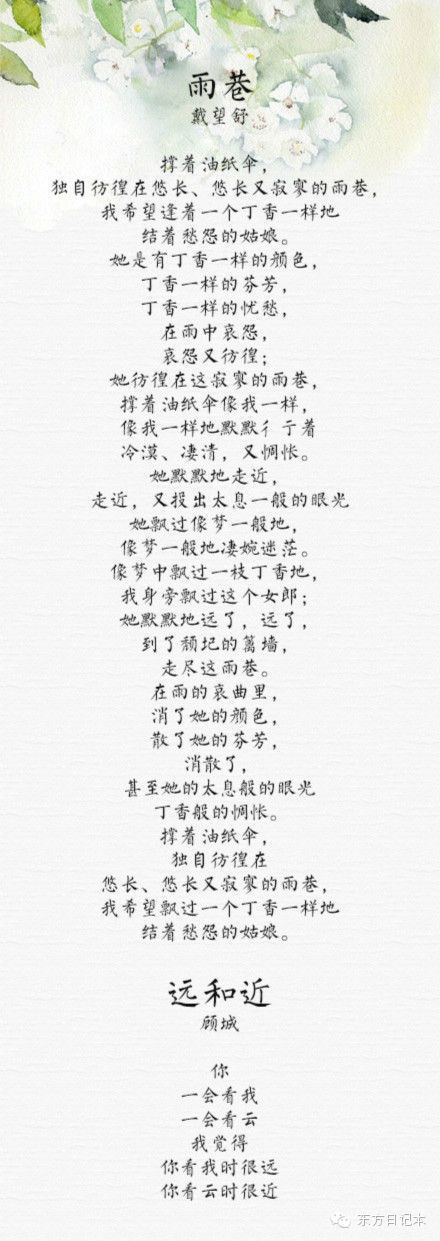 雨巷
戴望舒
撑着油纸伞，
独自彷徨在悠长、悠长又寂寥的雨巷，
我希望逢着一个丁香一样地
结着愁怨的姑娘。
她是有丁香一样的颜色，
丁香一样的芬芳，
丁香一样的忧愁，
在雨中哀怨，
哀怨又彷徨；
她彷徨在这寂寥的雨巷，
撑着油纸伞像我一样，
像我一样地默默彳亍着
冷漠、凄清，又惆怅。
她默默地走近，
走近，又投出太息一般的眼光
她飘过像梦一般地，
像梦一般地凄婉迷茫。
像梦中飘过一枝丁香地，
我身旁飘过这个女郎；
她默默地远了，远了，
到了颓圮的篱墙，
走尽这雨巷。
在雨的哀曲里，
消了她的颜色，
散了她的芬芳，
消散了，
甚至她的太息般的眼光
丁香般的惆怅。
撑着油纸伞，
独自彷徨在
悠长、悠长又寂寥的雨巷，
我希望飘过一个丁香一样地
结着愁怨的姑娘。
远和近
顾城
你
一会看我
一会看云
我觉得
你看我时很远
你看云时很近
东方日记本